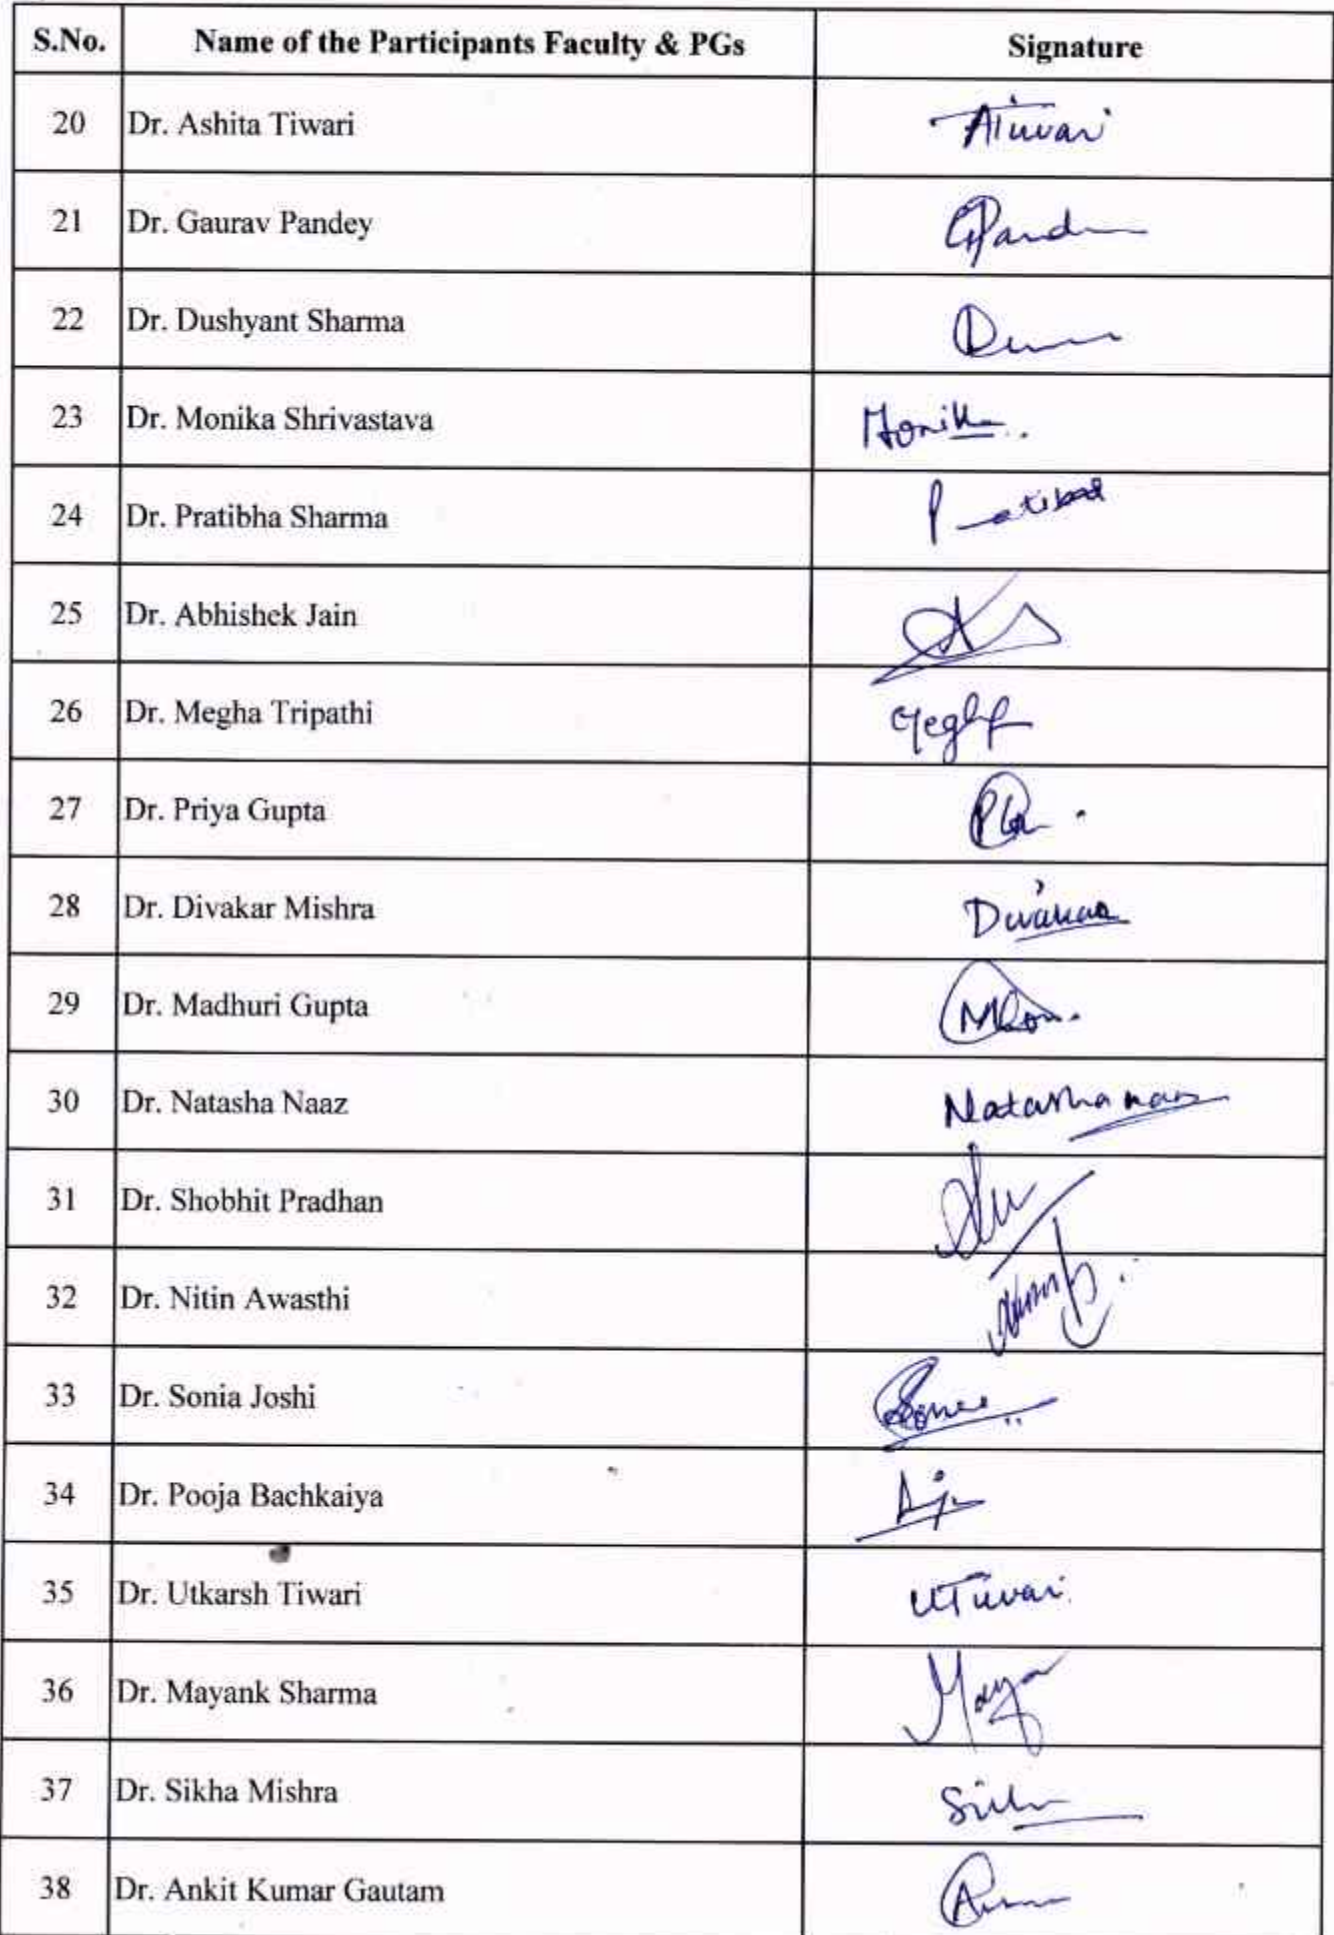 S.No. Name of the Participants Faculty & PGs Signature
20 Dr. Ashita Tiwari ATiwari
21 Dr. Gaurav Pandey GPand
22 Dr. Dushyant Sharma
23 Dr. Monika Shrivastava Monika
24 Dr. Pratibha Sharma
25 Dr. Abhishek Jain
26 Dr. Megha Tripathi Megha
27 Dr. Priya Gupta
28 Dr. Divakar Mishra Divakar
29 Dr. Madhuri Gupta
30 Dr. Natasha Naaz Natasha naaz
31 Dr. Shobhit Pradhan
32 Dr. Nitin Awasthi
33 Dr. Sonia Joshi
34 Dr. Pooja Bachkaiya
35 Dr. Utkarsh Tiwari UTiwari
36 Dr. Mayank Sharma
37 Dr. Sikha Mishra
38 Dr. Ankit Kumar Gautam